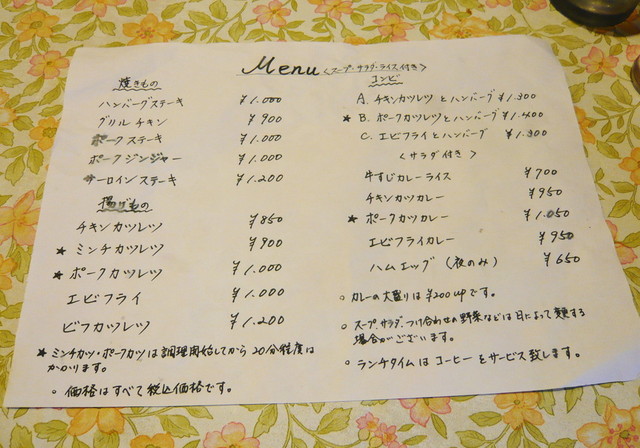 Menu 〈スープ・サラダ・ライス付き〉
焼きもの
ハンバーグステーキ ¥1.000
グリルチキン ¥900
ポークステーキ ¥1.000
ポークジンジャー ¥1.000
サーロインステーキ ¥1.200
揚げもの
チキンカツレツ ¥850
★ミンチカツレツ ¥900
★ポークカツレツ ¥1.000
エビフライ ¥1.000
ビフカツレツ ¥1.200
★ミンチカツ・ポークカツは調理開始してから20分程度は
かかります。
○価格はすべて税込価格です。
コンビ
A. チキンカツレツとハンバーグ ¥1.300
★B. ポークカツレツとハンバーグ ¥1.400
C. エビフライとハンバーグ ¥1.300
〈サラダ付き〉
牛すじカレーライス ¥700
チキンカツカレー ¥950
★ポークカツカレー ¥1.050
エビフライカレー ¥950
ハムエッグ(夜のみ) ¥650
○カレーの大盛りは¥200upです。
○スープ、サラダ、つけ合わせの野菜などは日によって変る
場合がございます。
○ランチタイムはコーヒーをサービス致します。